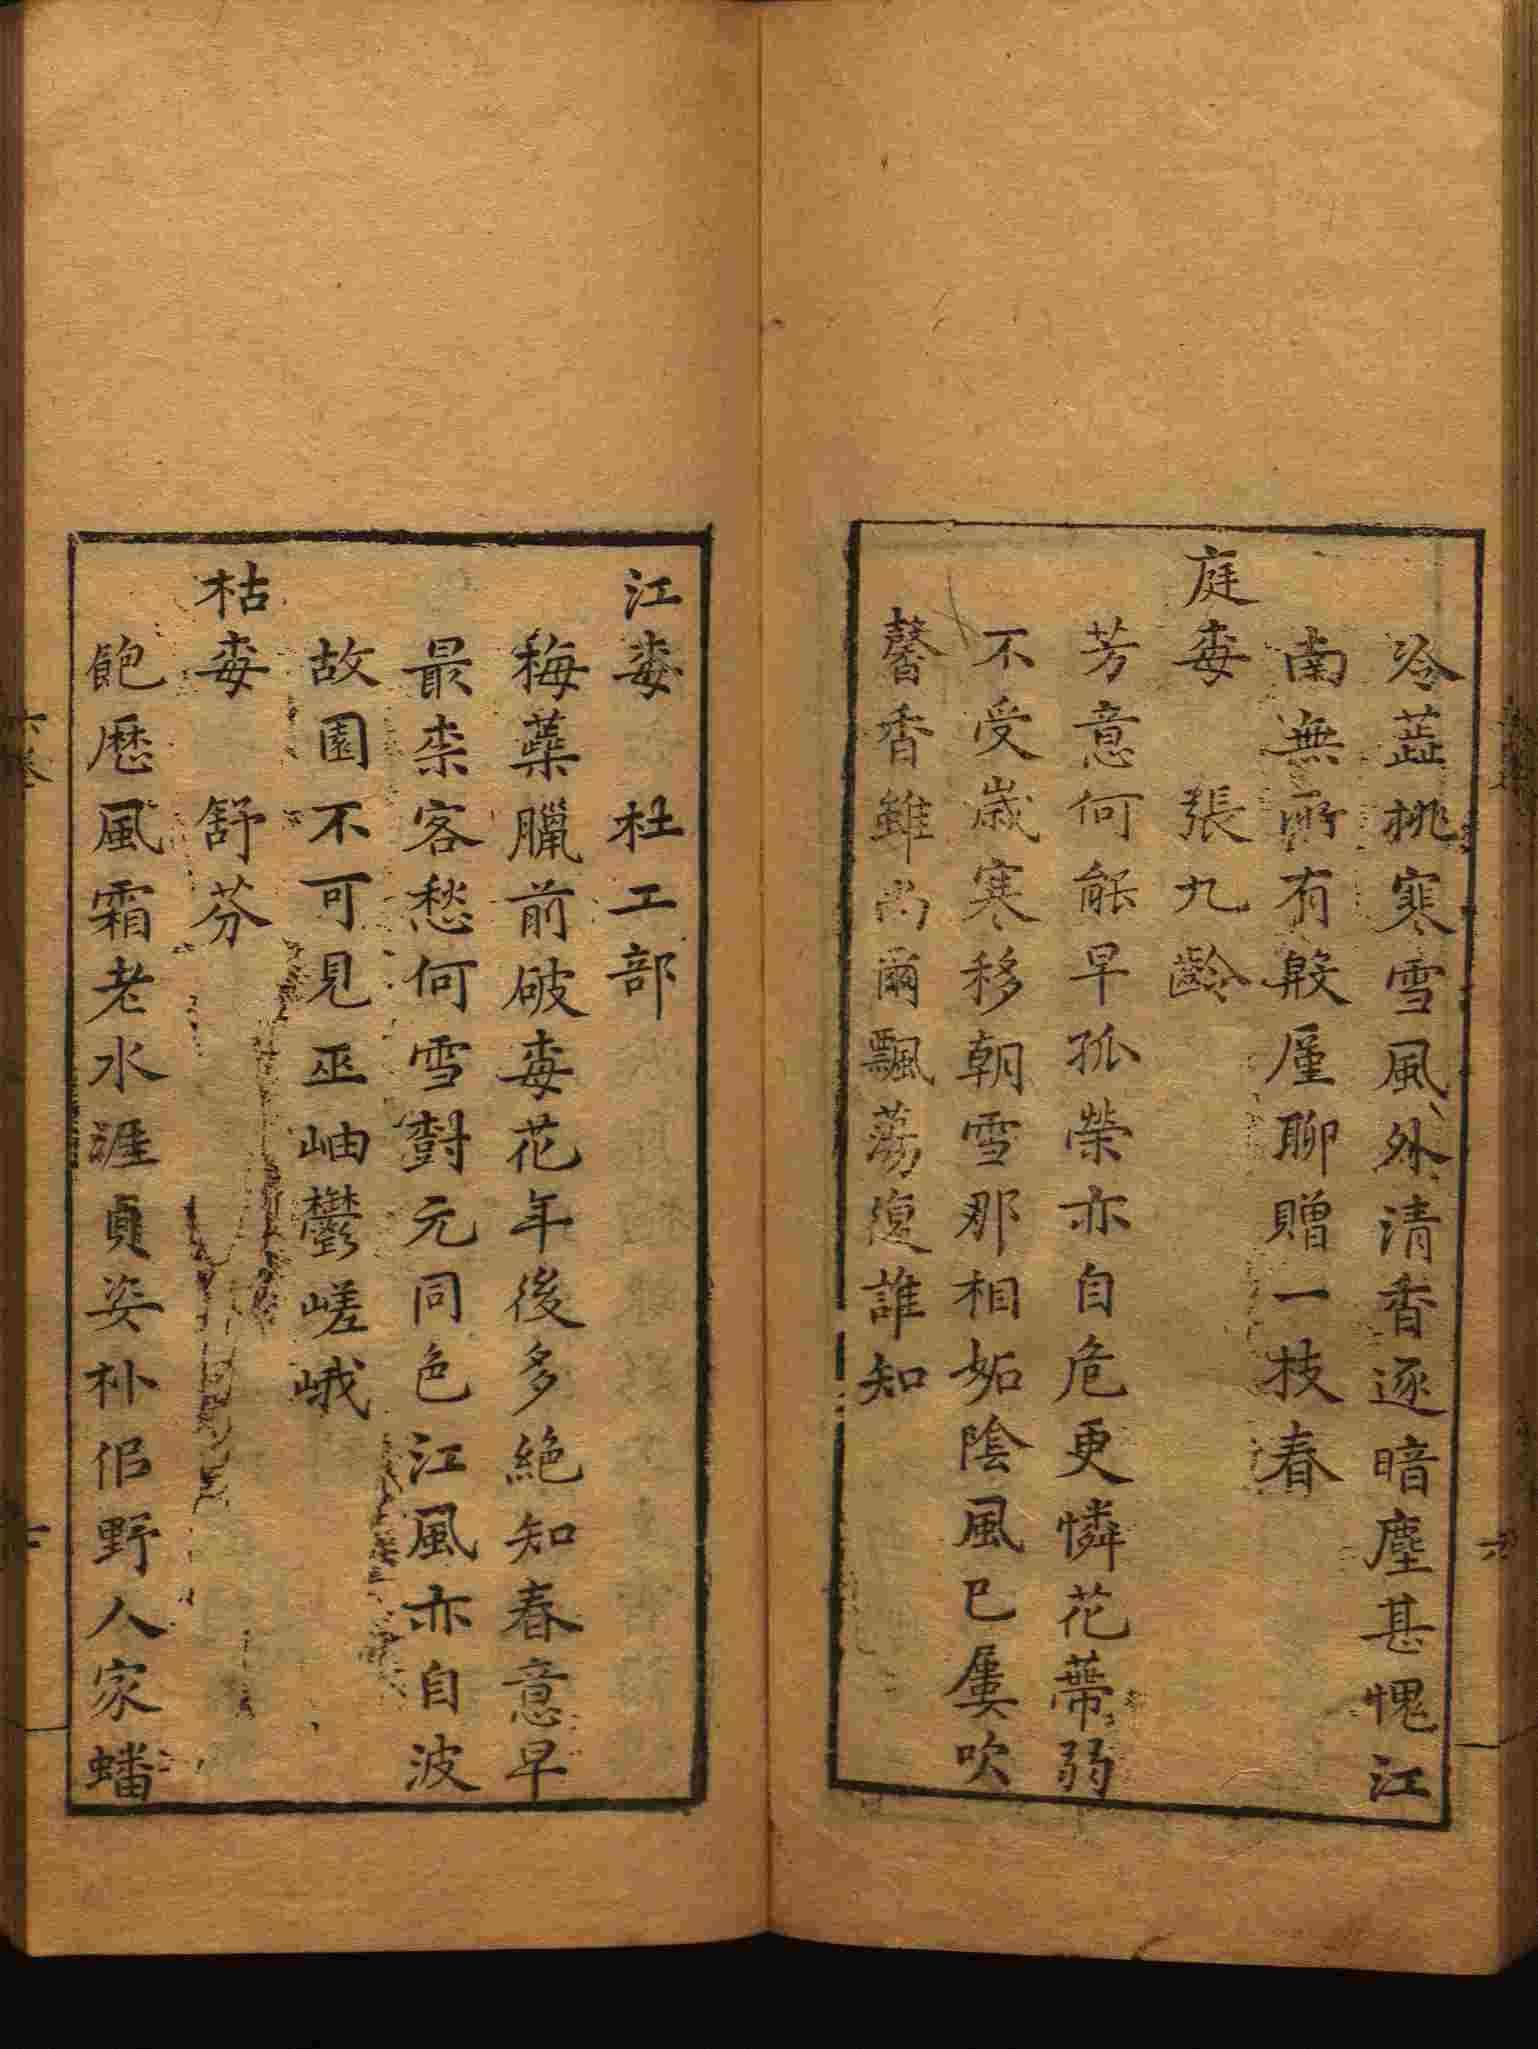 冷蕋桃寒雪風外清香逐暗塵甚愧江
南無所有殷勤聊贈一枝春
庭㛴 張九齡
芳意何能早孤榮亦自危更憐花蔕弱
不受歲寒移朝雪那相妬陰風已屢吹
馨香雖尚爾飄蕩復誰知
江㛴 杜工部
梅蘂臘前破㛴花年後多絶知春意早
最柰客愁何雪對元同色江風亦自波
故園不可見巫岫鬱嵯峨
枯㛴 舒芬
飽歷風霜老水涯貞姿朴佀野人家蟠